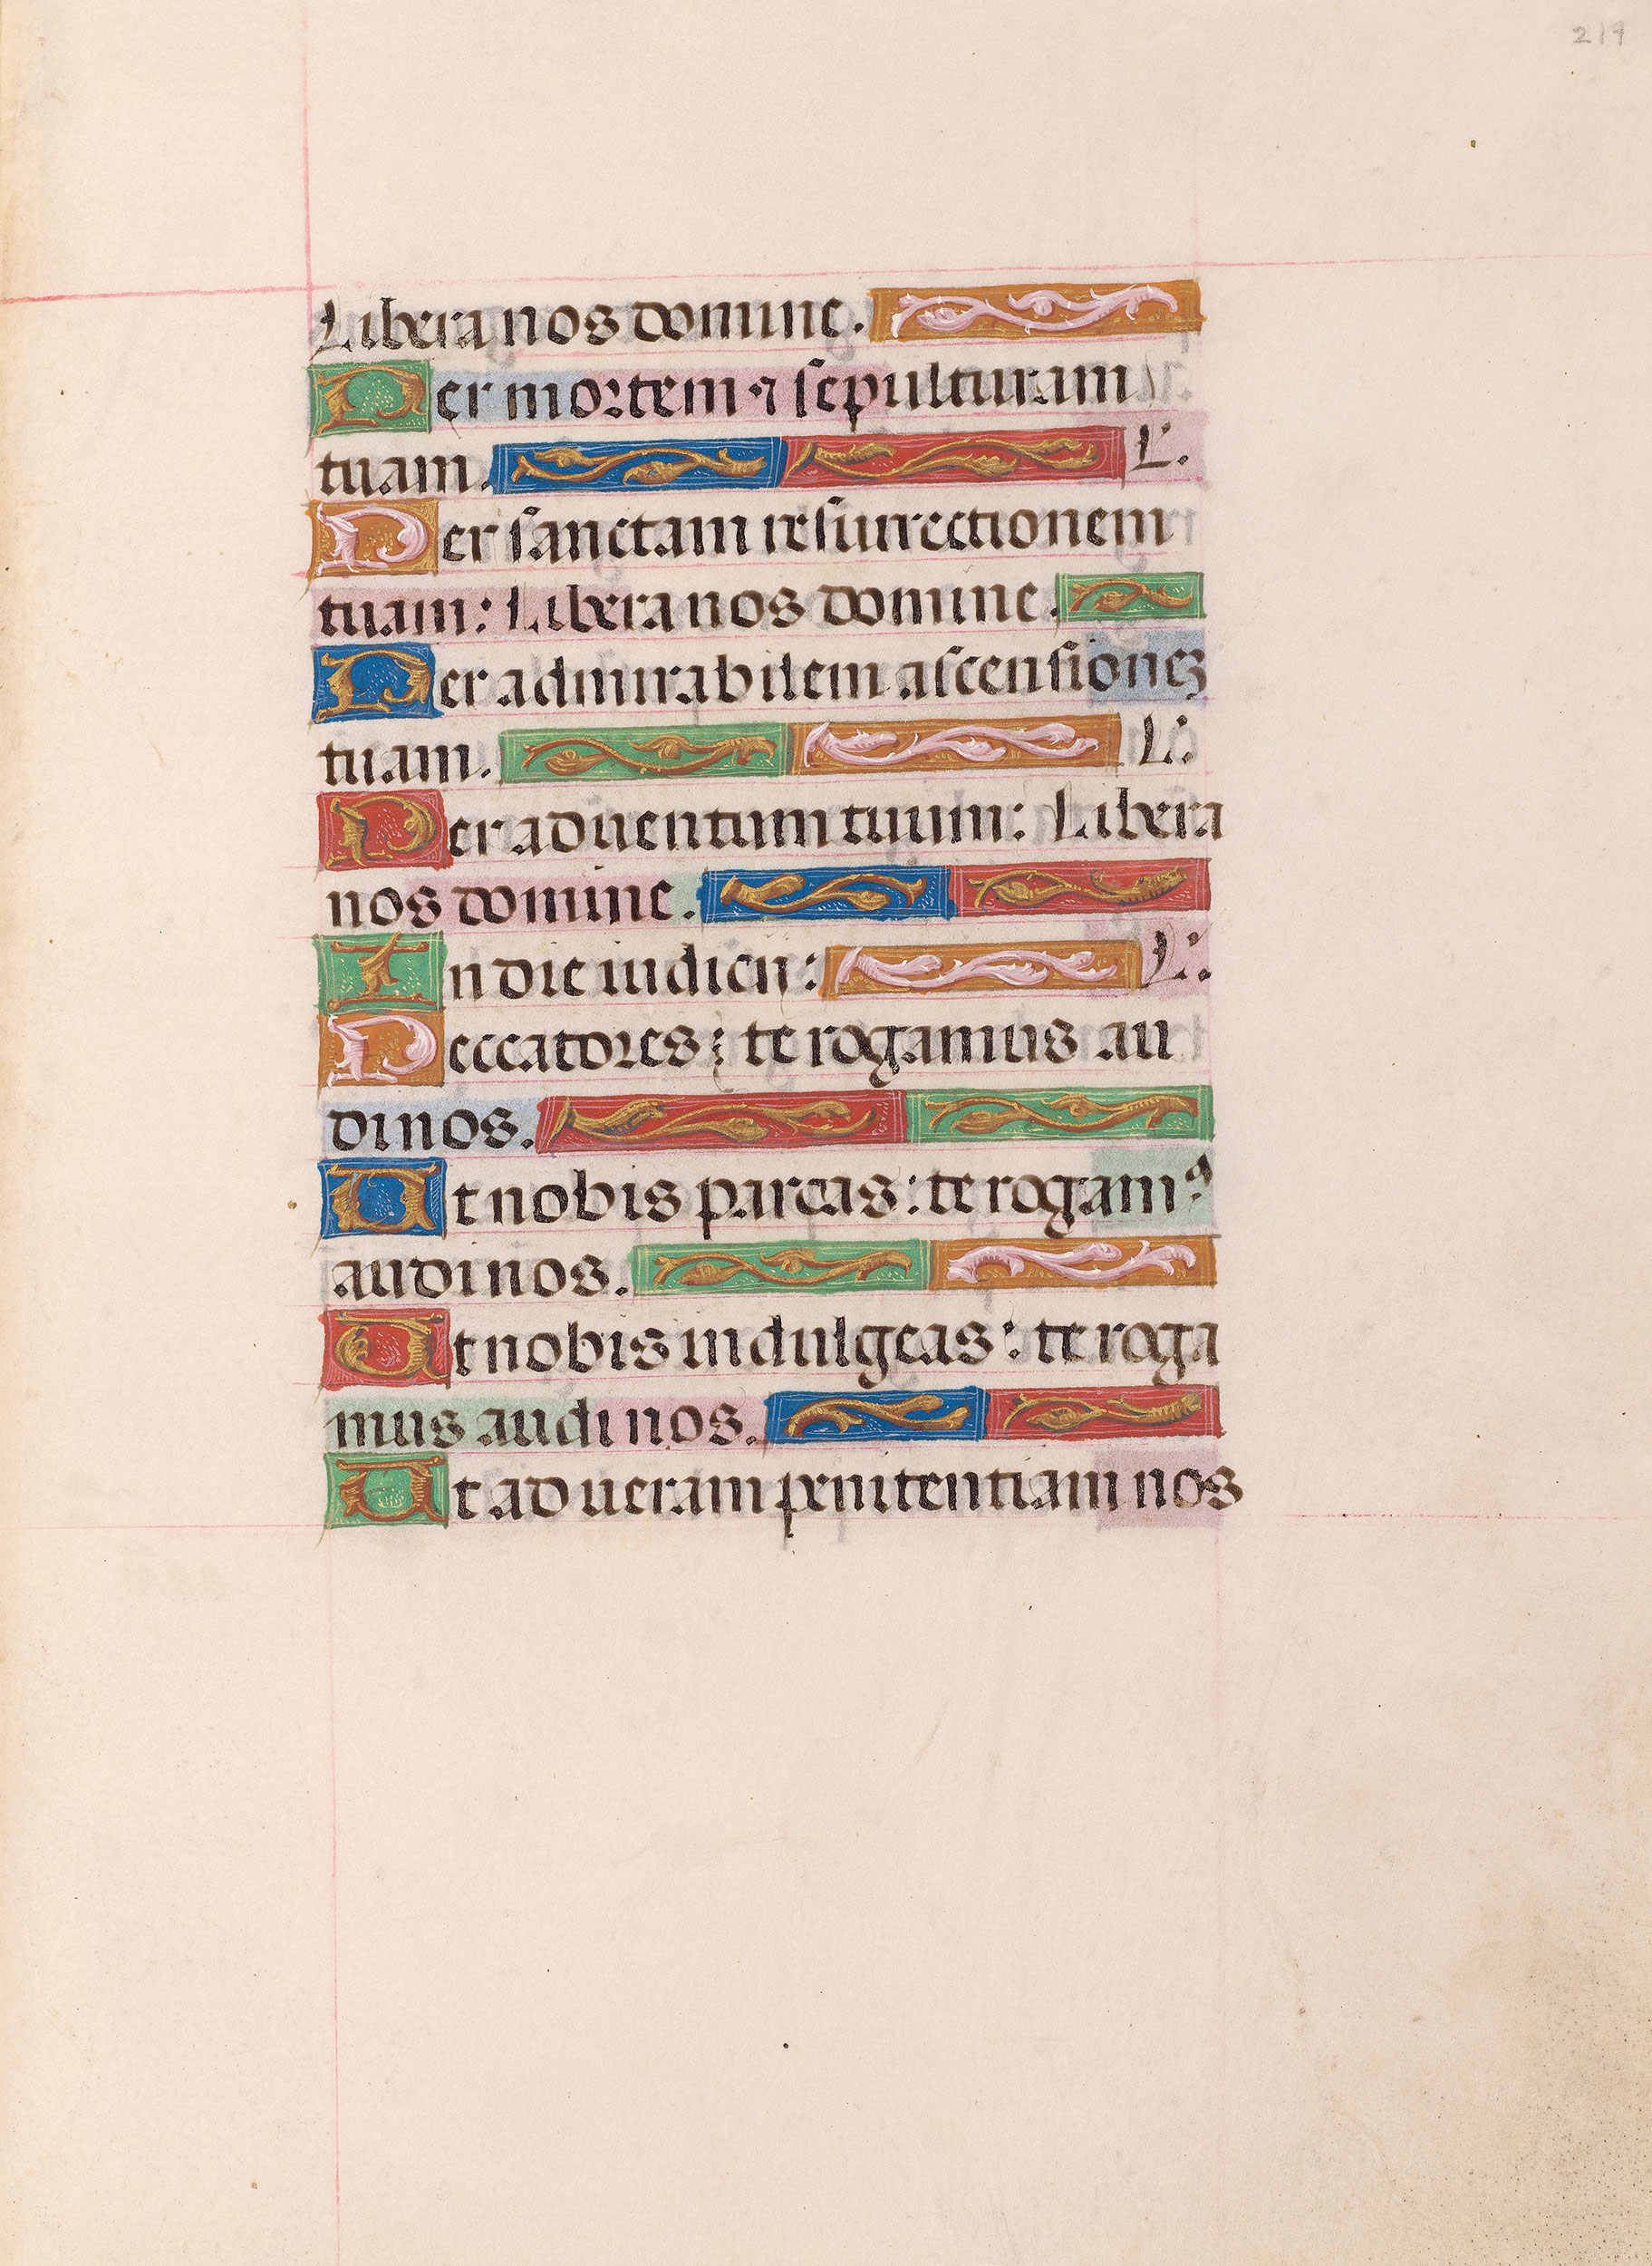 219
Libera nos domine.
Per mortem ⁊ sepulturam
tuam. L'.
Per sanctam resurrectionem
tuam: Libera nos domine.
Per admirabilem ascensioneꝫ
tuam. L'.
Per aduentum tuum: Libera
nos domine.
In die iudicii: L'.
Peccatores: te rogamus au
di nos.
Ut nobis parcas: te rogamꝰ
audi nos.
Ut nobis indulgeas: te roga
mus audi nos.
Ut ad ueram penitentiam nos